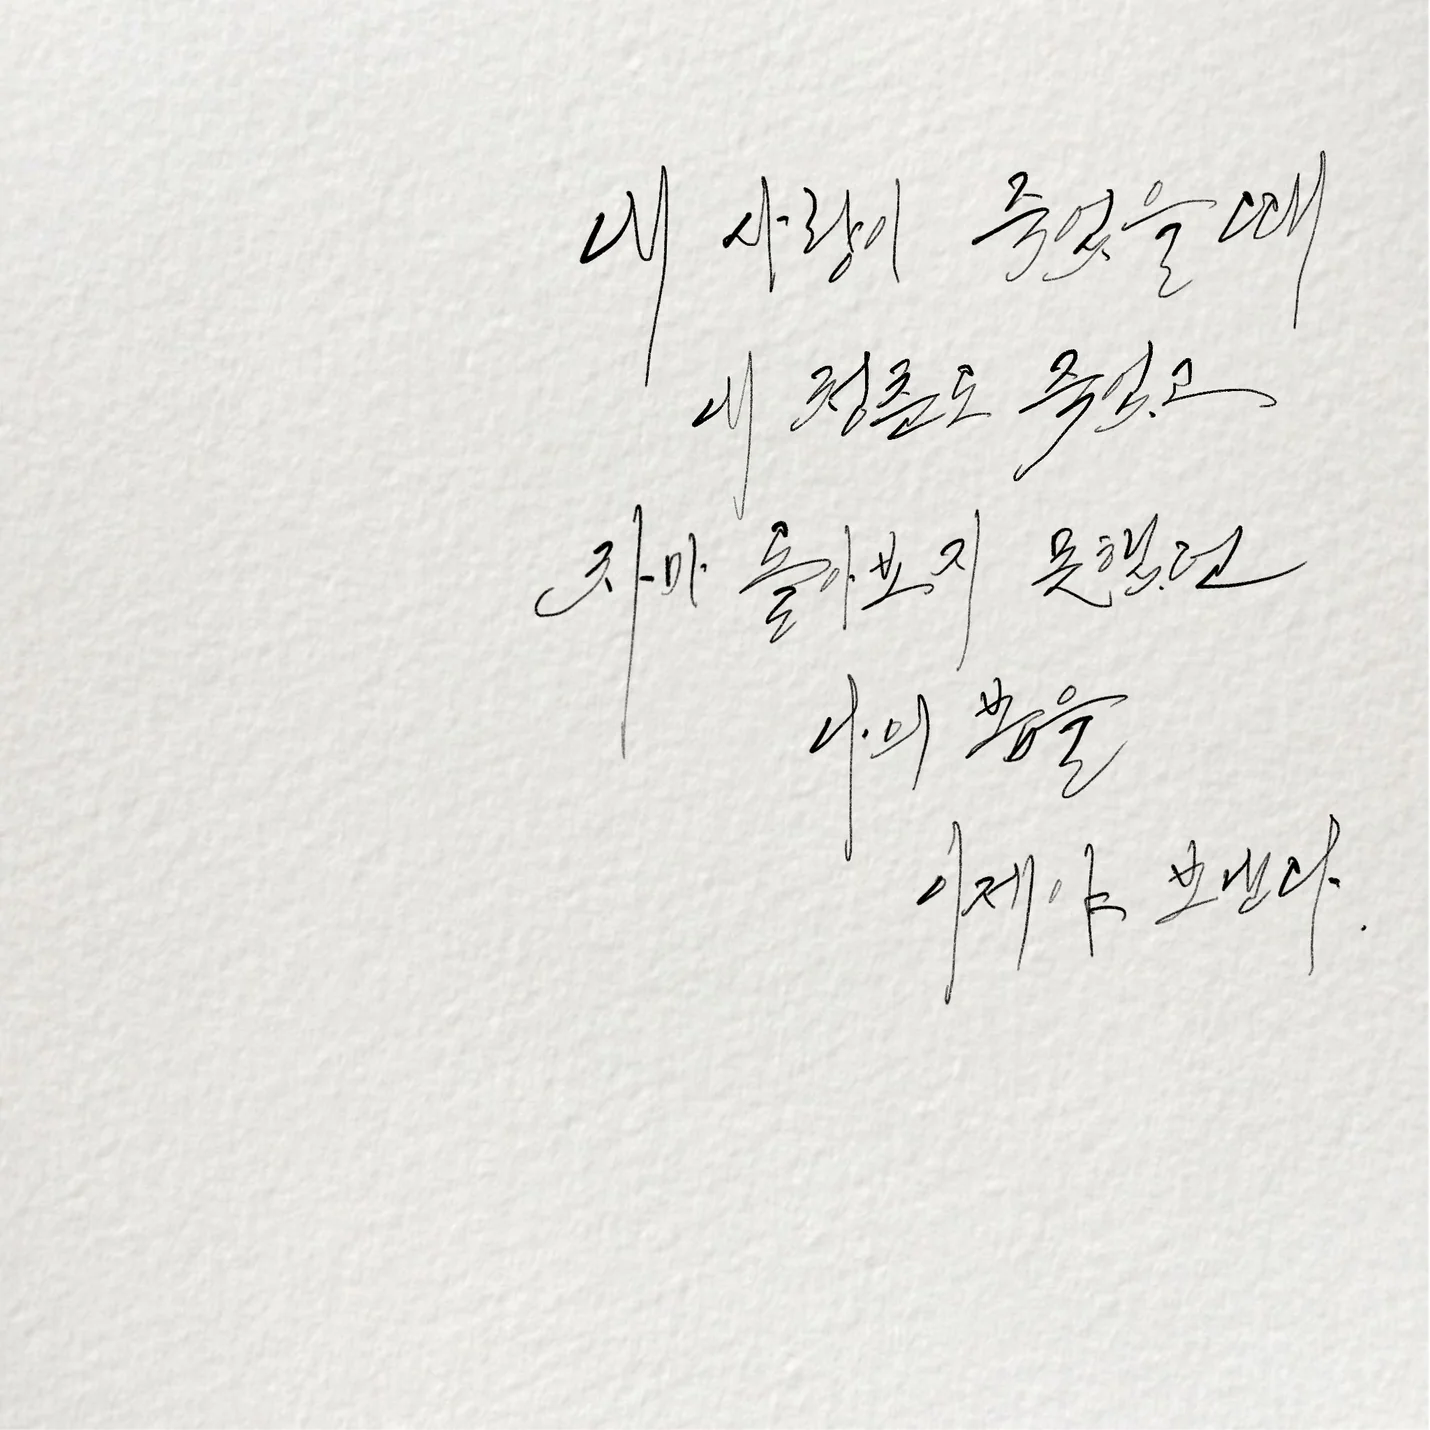 내 사랑이 죽었을 때
내 청춘도 죽었고
차마 돌아보지 못했던
나의 봄을
이제야 보낸다.